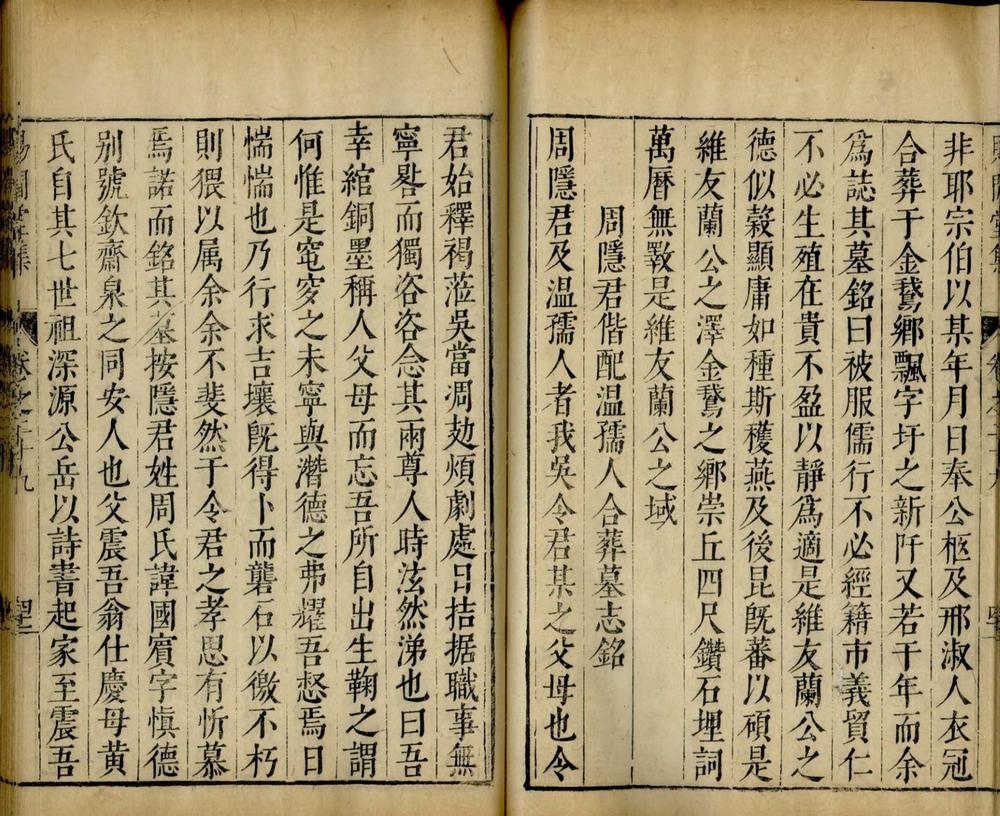 非耶宗伯以某年月日奉公柩及邢淑人衣冠
合葬于金鵞鄉飄字圩之新阡又若干年而余
爲誌其墓銘曰被服儒行不必經籍市義貿仁
不必生殖在貴不盈以靜爲適是維友蘭公之
德似榖顯庸如種斯穫燕及後昆旣蕃以碩是
維友蘭公之澤金鵞之鄉崇丘四尺鑽石埋詞
萬曆無斁是維友蘭公之域
周隱君偕配温孺人合葬墓志銘
周隱君及温孺人者我吳令君某之父母也令
君始釋褐蒞吳當凋攰煩劇處日拮据職事無
寧晷而獨咨咨念其兩尊人時泫然涕也曰吾
幸綰銅墨稱人父母而忘吾所自出生鞠之謂
何惟是窀穸之未寧與潛德之弗耀吾惄焉日
惴惴也乃行求吉壤旣得卜而礱石以徼不朽
則猥以属余余不斐然于令君之孝思有忻慕
焉諾而銘其墓按隱君姓周氏諱國賓字愼德
别號欽齋泉之同安人也父震吾翁仕慶母黄
氏自其七世祖深源公岳以詩書起家至震吾
賜閒堂集 卷之二十九